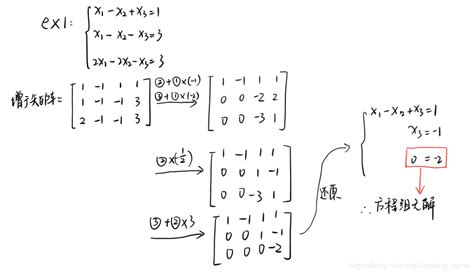 ex1: { x₁-x₂+x₃=1
x₁-x₂-x₃=3
2x₁-2x₂-x₃=3
增广矩阵= [1 -1 1 1
1 -1 -1 3
2 -1 -1 3]
②+①×(-1)
③+①×(-2)
[1 -1 1 1
0 0 -2 2
0 0 -3 1]
②×(-1/2)
[1 -1 1 1
0 0 1 -1
0 0 -3 1]
③+②×3
[1 -1 1 1
0 0 1 -1
0 0 0 -2]
还原
{ x₁-x₂+x₃=1
x₃=-1
0=-2
∴方程组无解